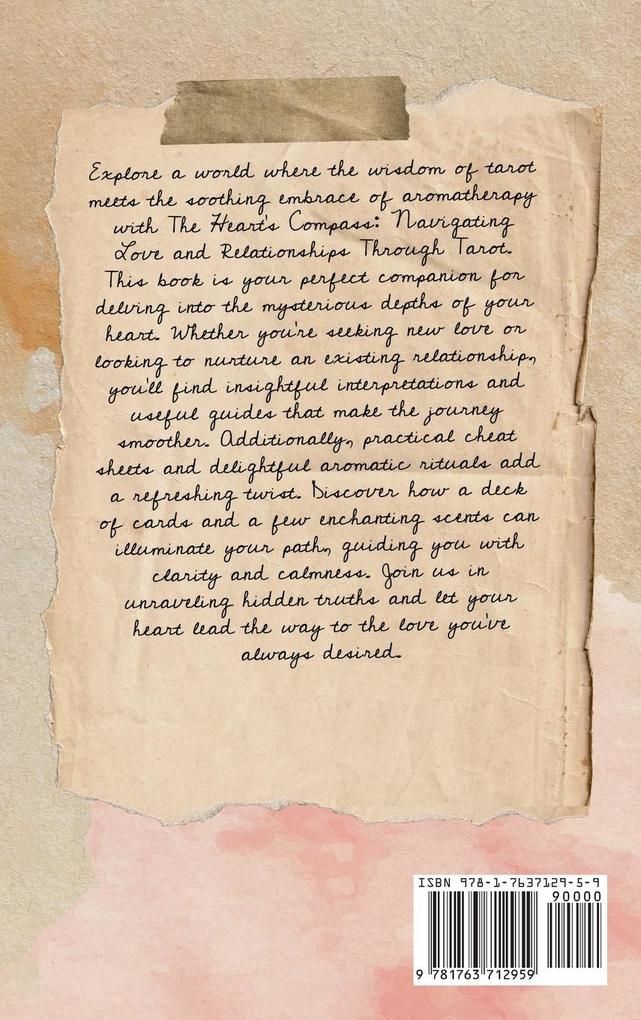 Explore a world where the wisdom of tarot
meets the soothing embrace of aromatherapy
with The Heart's Compass: Navigating
Love and Relationships Through Tarot.
This book is your perfect companion for
delving into the mysterious depths of your
heart. Whether you're seeking new love or
looking to nurture an existing relationship,
you'll find insightful interpretations and
useful guides that make the journey
smoother. Additionally, practical cheat
sheets and delightful aromatic rituals add
a refreshing twist. Discover how a deck
of cards and a few enchanting scents can
illuminate your path, guiding you with
clarity and calmness. Join us in
unraveling hidden truths and let your
heart lead the way to the love you've
always desired.
ISBN 978-1-7637129-5-9
90000
9 781763 712959